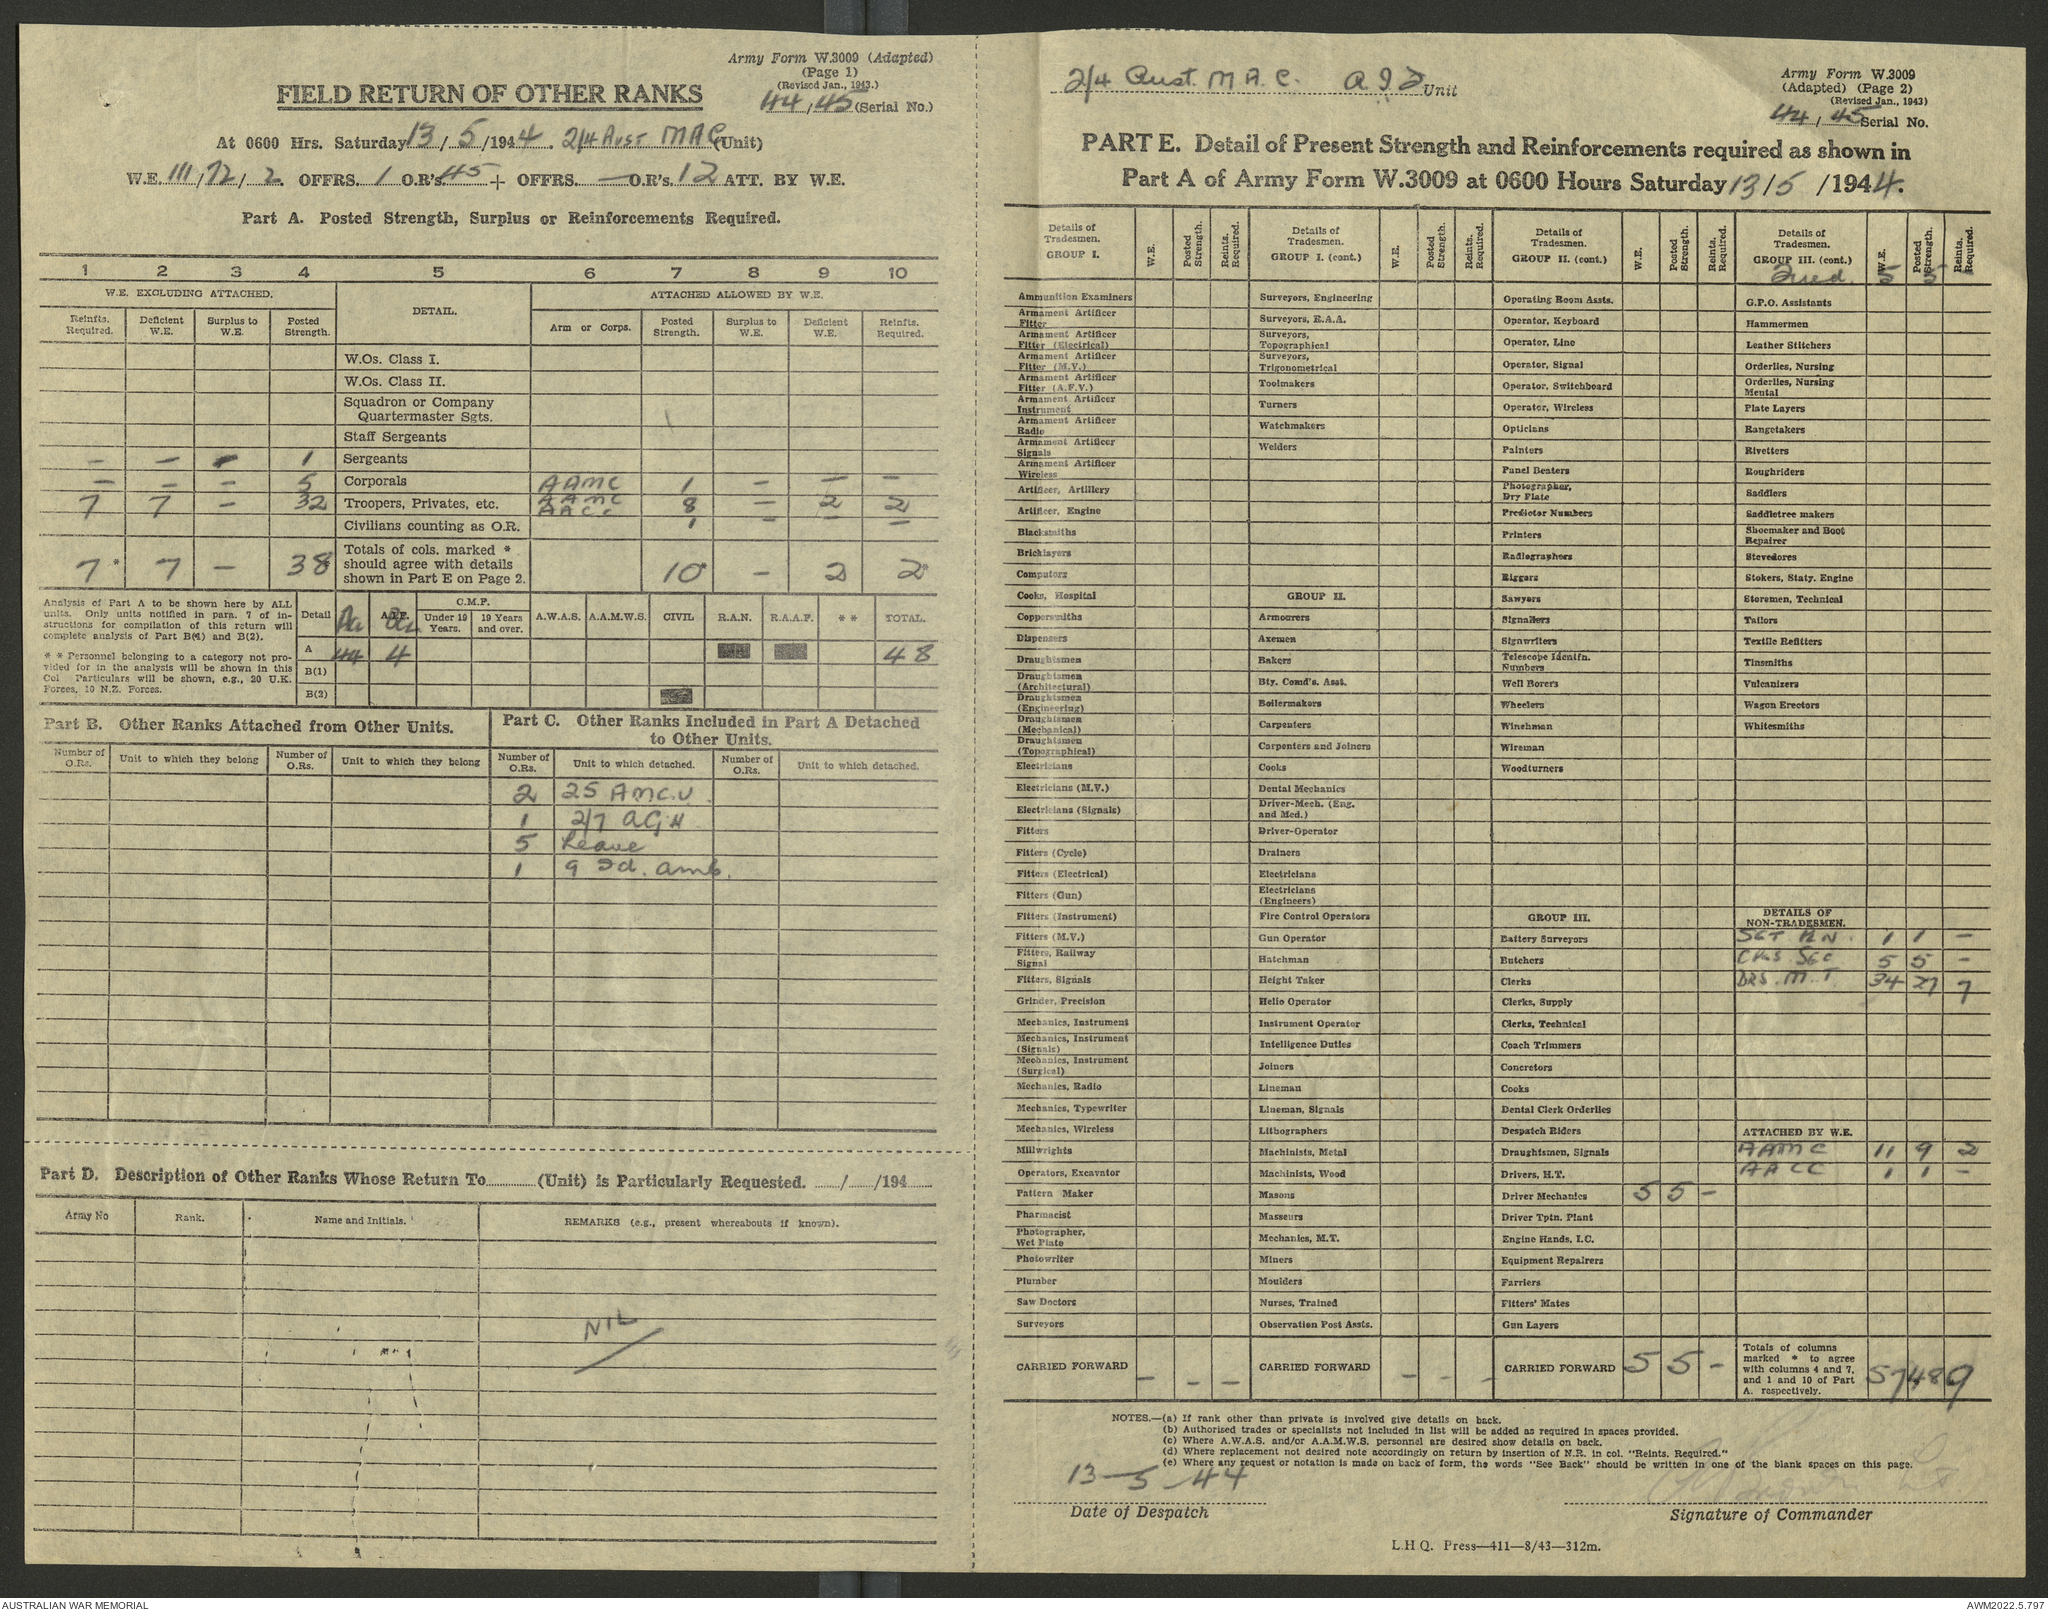 Army Form W.3009 (Adapted)
(Page 1)
(Revised Jan., 1943.)
FIELD RETURN OF OTHER RANKS
44/45 (Serial No.)
At 0600 Hrs. Saturday 13/5/1944. 2/4 Aust MAC (Unit)
W.E. III/72/2 OFFRS. 1 O.R's. 45 + OFFRS. — O.R's. 12 ATT. BY W.E.
Part A. Posted Strength, Surplus or Reinforcements Required.
1 2 3 4 5 6 7 8 9 10
W.E. EXCLUDING ATTACHED. DETAIL. ATTACHED ALLOWED BY W.E.
Reinfts. Required. Deficient W.E. Surplus to W.E. Posted Strength. Arm or Corps. Posted Strength. Surplus to W.E. Deficient W.E. Reinfts. Required.
W.Os. Class I.
W.Os. Class II.
Squadron or Company
Quartermaster Sgts.
Staff Sergeants
— — — 1 Sergeants
— — — 5 Corporals AAMC 1 — — —
7 7 — 32 Troopers, Privates, etc. AAMC 8 — 2 2
Civilians counting as O.R. AACC 1 — — —
7* 7 — 38 Totals of cols. marked * should agree with details shown in Part E on Page 2. 10* — 2 2*
Analysis of Part A to be shown here by ALL units. Only units notified in para. 7 of instructions for compilation of this return will complete analysis of Part B(1) and B(2).
* * Personnel belonging to a category not provided for in the analysis will be shown in this Col Particulars will be shown, e.g., 20 U.K. Forces, 10 N.Z. Forces.
Detail A.I.F. C.M.F. Under 19 Years. 19 Years and over. A.W.A.S. A.A.M.W.S. CIVIL R.A.N. R.A.A.F. * * TOTAL.
A 44 4 48
B(1)
B(2)
Part B. Other Ranks Attached from Other Units.
Number of O.Rs. Unit to which they belong Number of O.Rs. Unit to which they belong
Part C. Other Ranks Included in Part A Detached to Other Units.
Number of O.Rs. Unit to which detached. Number of O.Rs. Unit to which detached.
2 25 AMC.U.
1 2/7 A.G.H
5 Leave
1 9 Fd. Amb.
Part D. Description of Other Ranks Whose Return To (Unit) is Particularly Requested. / /194
Army No Rank. Name and Initials. REMARKS (e.g., present whereabouts if known).
NIL
2/4 Aust. M.A.C. A.I.F Unit
Army Form W.3009
(Adapted) (Page 2)
(Revised Jan., 1943)
44/45 Serial No.
PART E. Detail of Present Strength and Reinforcements required as shown in
Part A of Army Form W.3009 at 0600 Hours Saturday 13/5/1944.
Details of Tradesmen. GROUP I. W.E. Posted Strength. Reints. Required.
Ammunition Examiners
Armament Artificer Fitter
Armament Artificer Fitter (Electrical)
Armament Artificer Fitter (M.V.)
Armament Artificer Fitter (A.F.V.)
Armament Artificer Instrument
Armament Artificer Radio
Armament Artificer Signals
Armament Artificer Wireless
Artificer, Artillery
Artificer, Engine
Blacksmiths
Bricklayers
Computors
Cooks, Hospital
Coppersmiths
Dispensers
Draughtsmen
Draughtsmen (Architectural)
Draughtsmen (Engineering)
Draughtsmen (Mechanical)
Draughtsmen (Topographical)
Electricians
Electricians (M.V.)
Electricians (Signals)
Fitters
Fitters (Cycle)
Fitters (Electrical)
Fitters (Gun)
Fitters (Instrument)
Fitters (M.V.)
Fitters, Railway Signal
Fitters, Signals
Grinder, Precision
Mechanics, Instrument
Mechanics, Instrument (Signals)
Mechanics, Instrument (Surgical)
Mechanics, Radio
Mechanics, Typewriter
Mechanics, Wireless
Millwrights
Operators, Excavator
Pattern Maker
Pharmacist
Photographer, Wet Plate
Photowriter
Plumber
Saw Doctors
Surveyors
CARRIED FORWARD — — —
Details of Tradesmen. GROUP I. (cont.) W.E. Posted Strength. Reints. Required.
Surveyors, Engineering
Surveyors, R.A.A.
Surveyors, Topographical
Surveyors, Trigonometrical
Toolmakers
Turners
Watchmakers
Welders
GROUP II.
Armourers
Axemen
Bakers
Bty. Comd's. Asst.
Boilermakers
Carpenters
Carpenters and Joiners
Cooks
Dental Mechanics
Driver-Mech. (Eng. and Med.)
Driver-Operator
Drainers
Electricians
Electricians (Engineers)
Fire Control Operators
Gun Operator
Hatchman
Height Taker
Helio Operator
Instrument Operator
Intelligence Duties
Joiners
Lineman
Lineman, Signals
Lithographers
Machinists, Metal
Machinists, Wood
Masons
Masseurs
Mechanics, M.T.
Miners
Moulders
Nurses, Trained
Observation Post Assts.
CARRIED FORWARD — — —
Details of Tradesmen. GROUP II. (cont.) W.E. Posted Strength. Reints. Required.
Operating Room Assts.
Operator, Keyboard
Operator, Line
Operator, Signal
Operator, Switchboard
Operator, Wireless
Opticians
Painters
Panel Beaters
Photographer, Dry Plate
Predictor Numbers
Printers
Radiographers
Riggers
Sawyers
Signallers
Signwriters
Telescope Identfn. Numbers
Well Borers
Wheelers
Winchman
Wireman
Woodturners
GROUP III.
Battery Surveyors
Butchers
Clerks
Clerks, Supply
Clerks, Technical
Coach Trimmers
Concretors
Cooks
Dental Clerk Orderlies
Despatch Riders
Draughtsmen, Signals
Drivers, H.T.
Driver Mechanics 5 5 —
Driver Tptn. Plant
Engine Hands, I.C.
Equipment Repairers
Farriers
Fitters' Mates
Gun Layers
CARRIED FORWARD 5 5 —
Details of Tradesmen. GROUP III. (cont.) W.E. Posted Strength. Reints. Required.
Fwd. 5 5 —
G.P.O. Assistants
Hammermen
Leather Stitchers
Orderlies, Nursing
Orderlies, Nursing Mental
Plate Layers
Rangetakers
Rivetters
Roughriders
Saddlers
Saddletree makers
Shoemaker and Boot Repairer
Stevedores
Stokers, Staty. Engine
Storemen, Technical
Tailors
Textile Refitters
Tinsmiths
Vulcanizers
Wagon Erectors
Whitesmiths
DETAILS OF NON-TRADESMEN.
SGT PLN. 1 1 —
CPLS SEC 5 5 —
DRS. M.T. 34 27 7
ATTACHED BY W.E.
AAMC 11 9 2
AACC 1 1 —
Totals of columns marked * to agree with columns 4 and 7, and 1 and 10 of Part A. respectively. 57 48 9
NOTES.—(a) If rank other than private is involved give details on back.
(b) Authorised trades or specialists not included in list will be added as required in spaces provided.
(c) Where A.W.A.S. and/or A.A.M.W.S. personnel are desired show details on back.
(d) Where replacement not desired note accordingly on return by insertion of N.R. in col. "Reints. Required."
(e) Where any request or notation is made on back of form, the words "See Back" should be written in one of the blank spaces on this page.
13-5-44
Date of Despatch
Signature of Commander
L.H.Q. Press—411—8/43—312m.
AUSTRALIAN WAR MEMORIAL
AWM2022.5.797